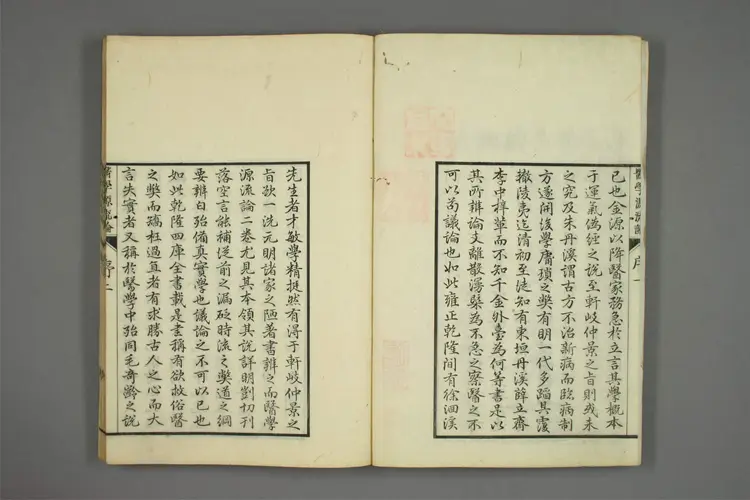 醫學源流論
序一
已也金源以降醫家務急於立言其學概本
于運氣偽經之說至軒岐仲景之旨則或未
之究及朱丹溪謂古方不治新病而臨病制
方遂開後學庸瑣之獘有明一代多蹈其覆
轍陵夷迄清初至徒知有東垣丹溪薛立齋
李中梓輩而不知千金外臺為何等書是以
其所辨論支離散漫槩為不急之察醫之不
可以苟議論也如此雍正乾隆間有徐洄溪
先生者才敏學精挺然有淂于軒岐仲景之
旨欲一洗元明諸家之陋著書辨之而醫學
源流論二卷尤見其本領其說詳明剴切刊
落空言能補從前之漏砭時流之獘道之綱
要辨白殆備真實學也議論之不可以已也
如此乾隆四庫全書載是書稱有欲救俗醫
之獘而矯枉過直者有求勝古人之心而大
言失實者又稱於醫學中殆同毛奇齡之說
醫學源流論
序二